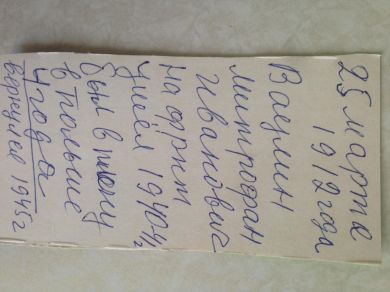 25 марта
1912 года
Ваулин
митрофан
Иванович
на фронт
ушёл 1940 1/2
был в плену
в польше
4 года
вернулся 1945 г